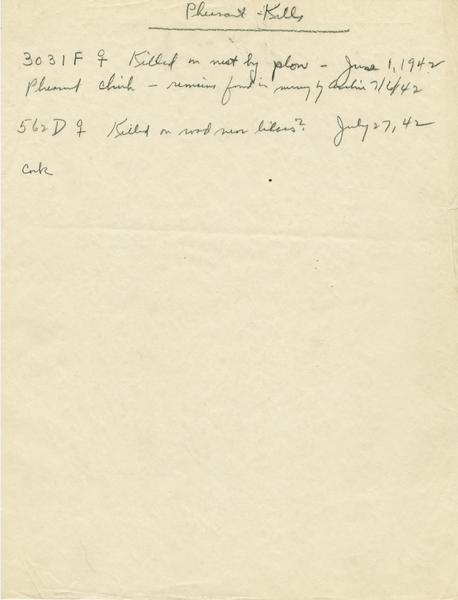 Pheasant Kills
3031F ♀ Killed on nest by plow - June 1, 1942
Pheasant chick - remains found in by 7/6/42
562D ♀ Killed on road near July 27, 42
Cork